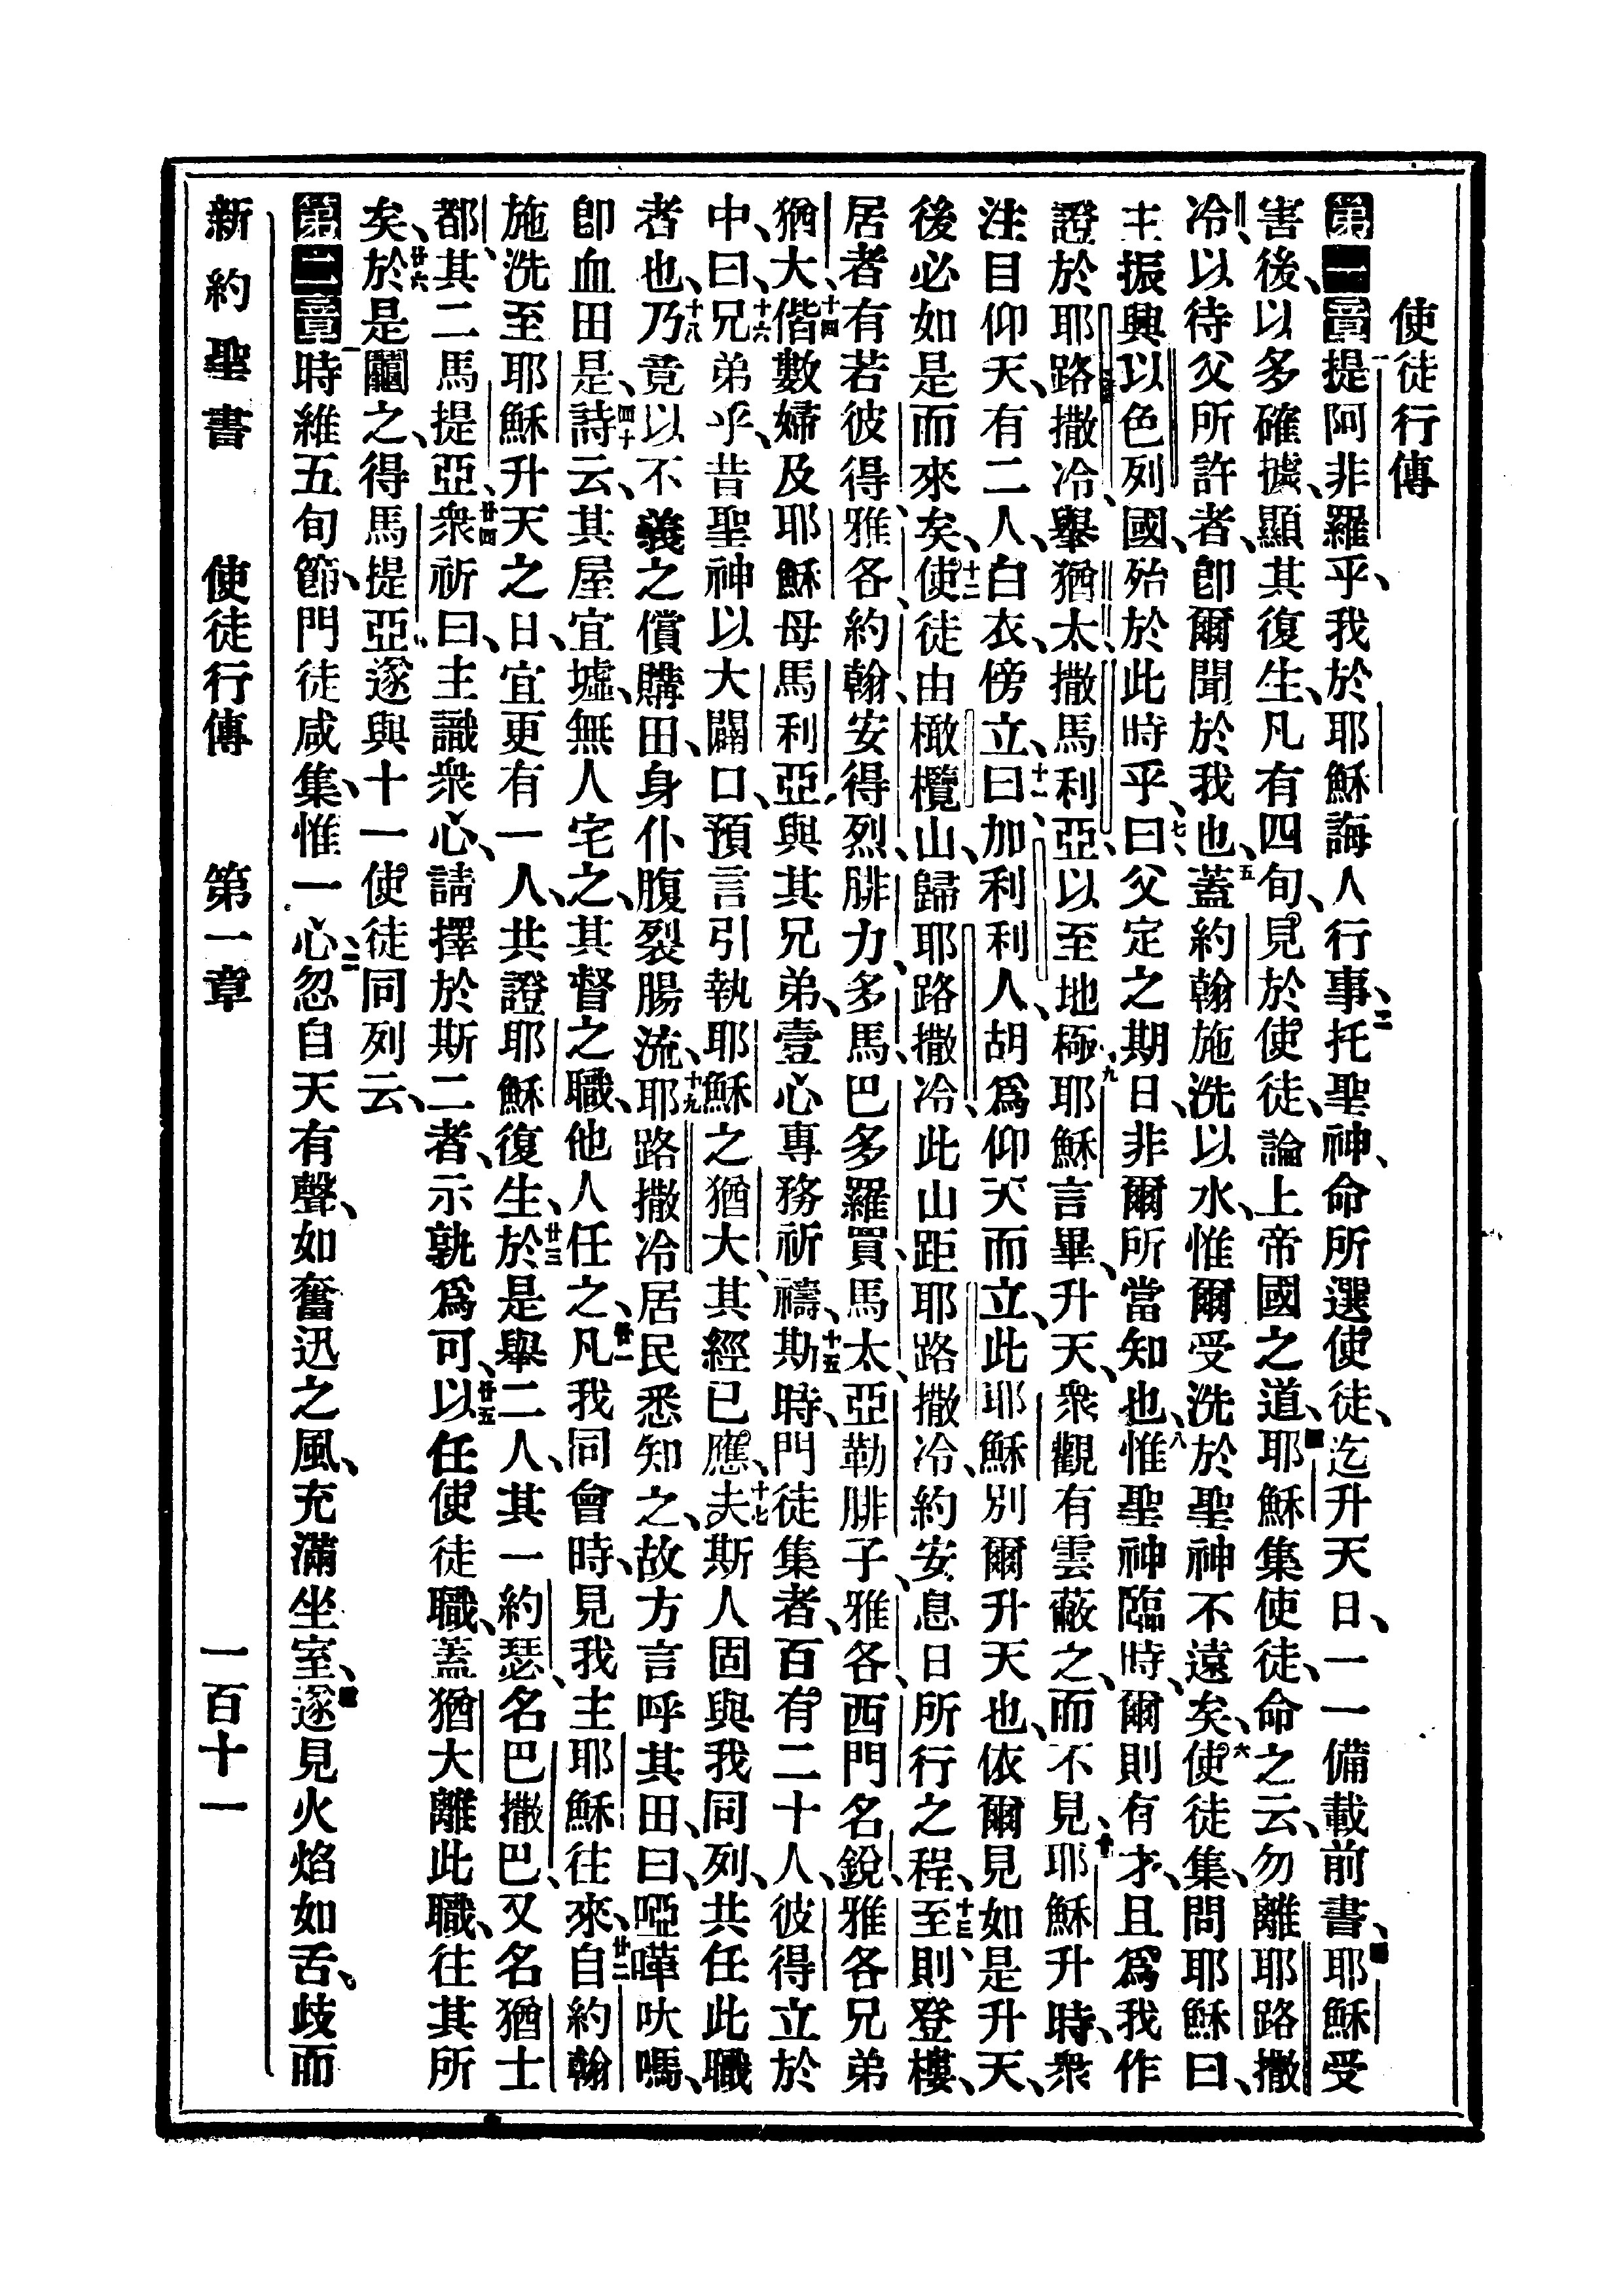 使徒行傳
第一章一提阿非羅乎、我於耶穌誨人行事、二托聖神、命所選使徒、迄升天日、一一備載前書、三耶穌受
害後、以多確據、顯其復生、凡有四旬、見於使徒、論上帝國之道、四耶穌集使徒、命之云、勿離耶路撒
冷、以待父所許者、卽爾聞於我也、五蓋約翰施洗以水、惟爾受洗於聖神不遠矣、六使徒集、問耶穌曰、
主振興以色列國、殆於此時乎、七曰、父定之期日、非爾所當知也、八惟聖神臨時、爾則有才、且爲我作
證於耶路撒冷、舉猶太撒馬利亞、以至地極、九耶穌言畢、升天、衆觀有雲蔽之、而不見、十耶穌升時、衆
注目仰天、有二人、白衣、傍立、十一曰、加利利人、胡爲仰天而立、此耶穌別爾升天也、依爾見如是升天、
後必如是而來矣、十二使徒由橄欖山、歸耶路撒冷、此山距耶路撒冷、約安息日所行之程、十三至、則登樓、
居者有若彼得、雅各、約翰、安得烈、腓力、多馬、巴多羅買、馬太、亞勒腓子、雅各、西門名銳、雅各兄弟
猶大、十四偕數婦及耶穌母馬利亞、與其兄弟、壹心專務祈禱、十五斯時、門徒集者、百有二十人、彼得立於
中、曰、十六兄弟乎、昔聖神以大闢口、預言引執耶穌之猶大、其經已應、十七夫斯人固與我同列、共任此職
者也、十八乃竟以不義之償購田、身仆腹裂腸流、十九耶路撒冷居民悉知之、故方言呼其田、曰、啞嗶吠嗎、
卽血田是、二十詩云、其屋宜墟、無人宅之、其督之職、他人任之、廿一凡我同會時、見我主耶穌往來、廿二自約翰
施洗至耶穌升天之日、宜更有一人、共證耶穌復生、廿三於是舉二人、其一約瑟、名巴撒巴、又名猶士
都、其二馬提亞、廿四衆祈曰、主識衆心、請擇於斯二者、示孰爲可、廿五以任使徒職、蓋猶大離此職、往其所
矣、廿六於是鬮之、得馬提亞、遂與十一使徒同列云、
第二章一時維五旬節、門徒咸集、惟一心、二忽自天有聲、如奮迅之風、充滿坐室、三遂見火焰如舌、歧而
新約聖書 使徒行傳 第一章 一百十一